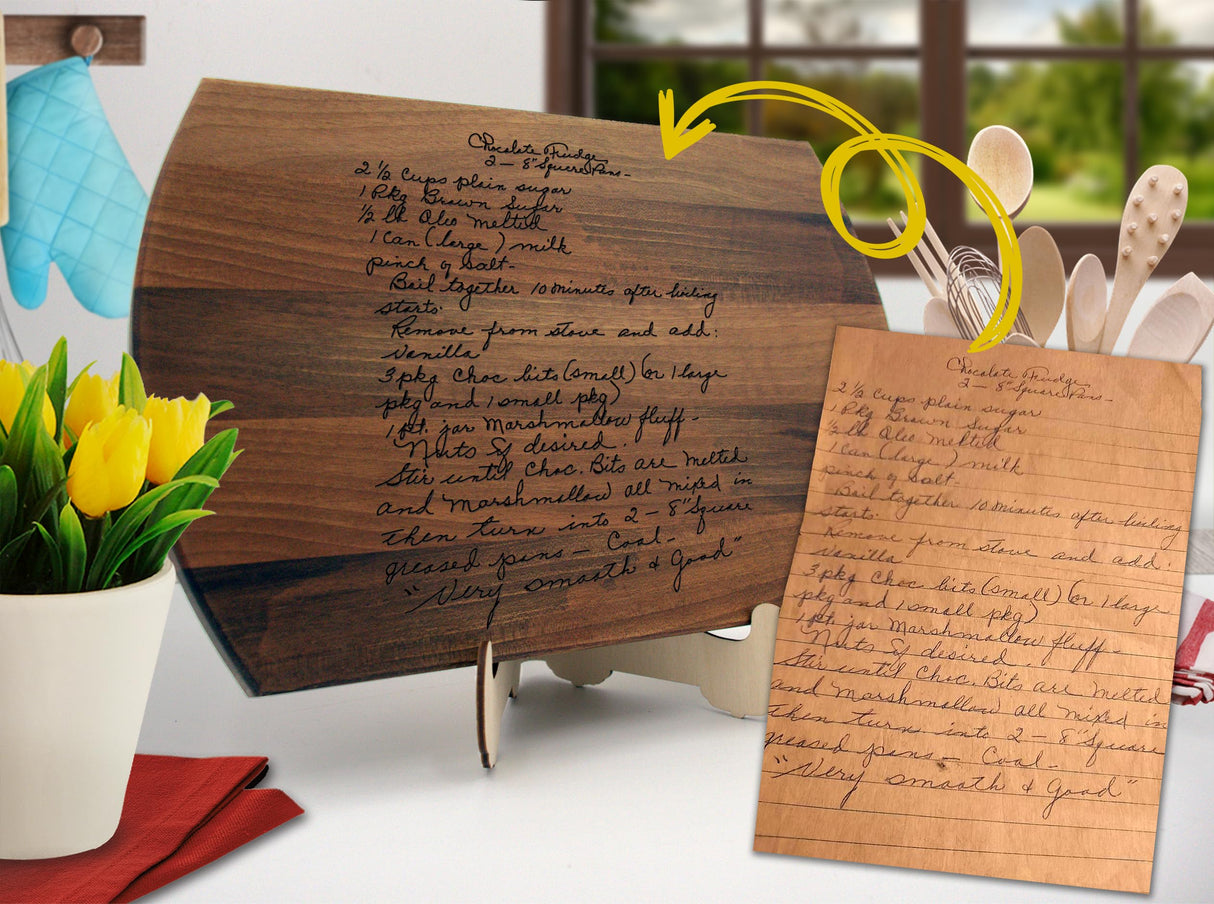 Chocolate Fudge
2 - 8" Square Pans -
2 1/2 Cups plain sugar
1 Pkg Brown Sugar
1/2 lb Oleo melted
1 Can (large) milk
pinch of salt -
Boil together 10 minutes after boiling
starts.
Remove from stove and add:
Vanilla
3 pkg Choc bits (small) (or 1 large
pkg and 1 small pkg)
1 pt. jar Marshmallow fluff -
Nuts if desired.
Stir until Choc. Bits are melted
and marshmallow all mixed in
then turn into 2 - 8" Square
greased pans - Cool -
"Very smooth & Good"
Chocolate Fudge
2 - 8" Square Pans -
2 1/2 Cups plain sugar
1 Pkg Brown Sugar
1/2 lb Oleo melted
1 Can (large) milk
pinch of salt -
Boil together 10 minutes after boiling
starts.
Remove from stove and add:
Vanilla
3 pkg Choc bits (small) (or 1 large
pkg and 1 small pkg)
1 pt. jar Marshmallow fluff -
Nuts if desired.
Stir until Choc. Bits are melted
and marshmallow all mixed in
then turn into 2 - 8" Square
greased pans - Cool -
"Very smooth & Good"